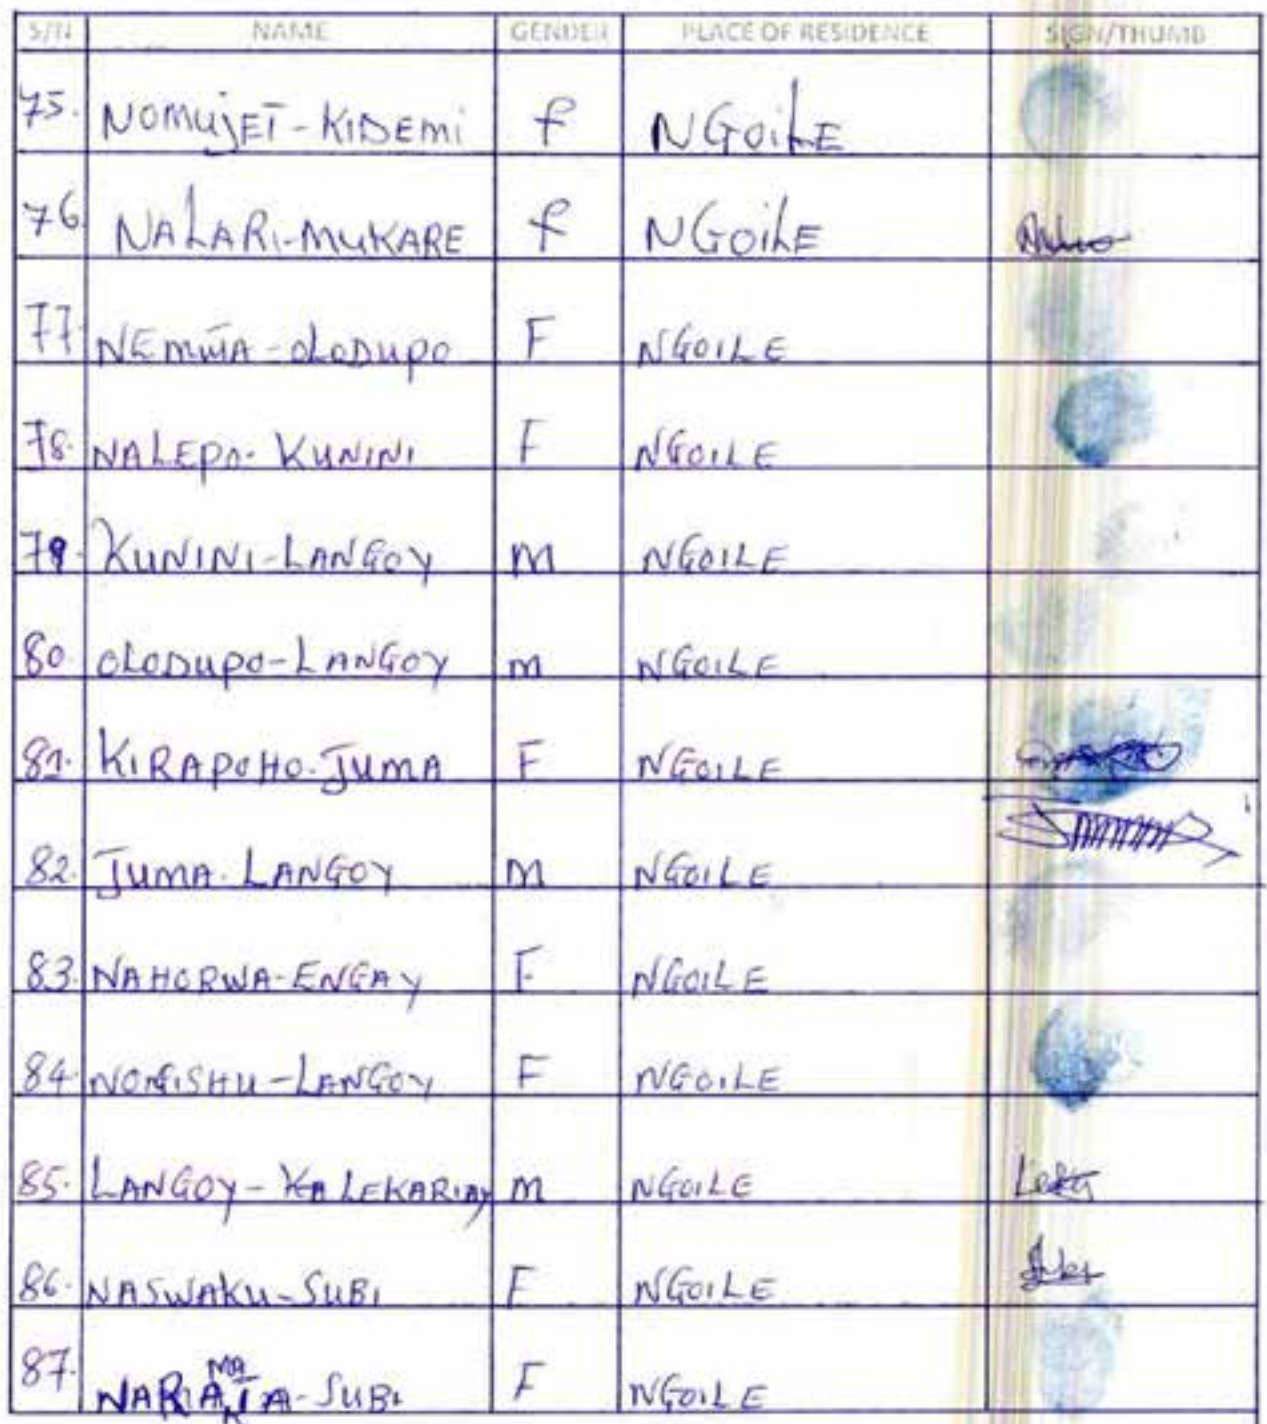 S/N NAME GENDER PLACE OF RESIDENCE SIGN/THUMB
75. NOMUJET-KIDEMI f NGOILE
76 NALARI-MUKARE f NGOILE
77. NEMWA-OLODUPO F NGOILE
78. NALEPO-KUNINI F NGOILE
79. KUNINI-LANGOY M NGOILE
80. OLODUPO-LANGOY M NGOILE
81. KIRAPOHO-JUMA F NGOILE
82. JUMA-LANGOY M NGOILE
83. NAHORWA-ENGAY F NGOILE
84 NONGISHU-LANGOY F NGOILE
85. LANGOY-KALEKARIAY M NGOILE
86. NASWAKU-SUBI F NGOILE
87. SUBI F NGOILE